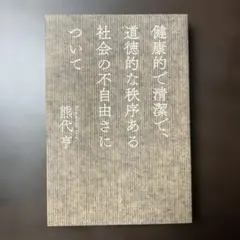 健康的で清潔で、
道徳的な秩序ある
社会の不自由さに
ついて
熊代亨